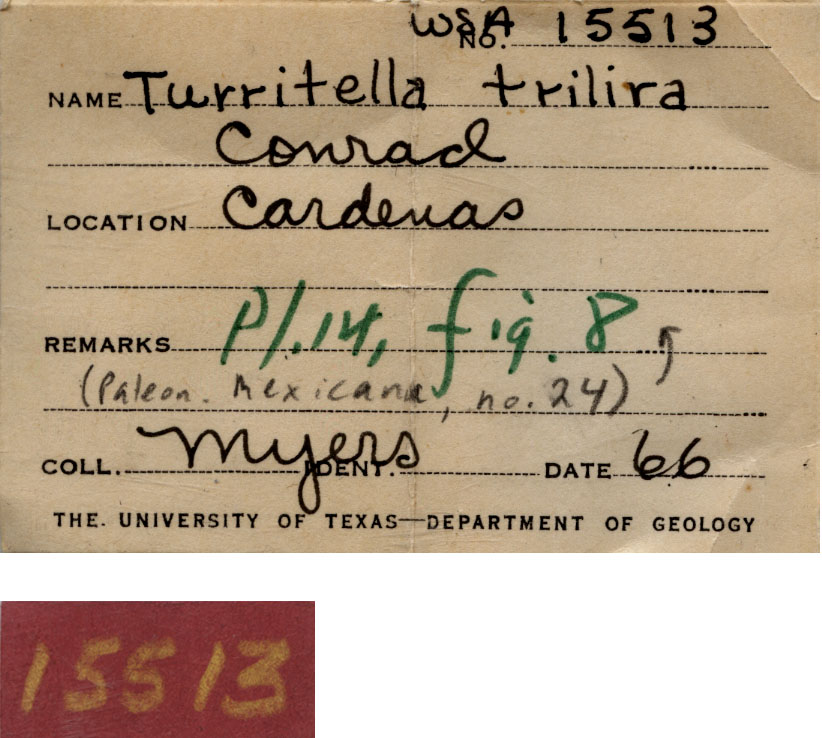 WSA
NO. 15513
NAME Turritella trilira
Conrad
LOCATION Cardenas
REMARKS Pl. 14, fig. 8
(Paleon. Mexicana, no. 24)
COLL. Myers IDENT. DATE 66
THE UNIVERSITY OF TEXAS—DEPARTMENT OF GEOLOGY
15513